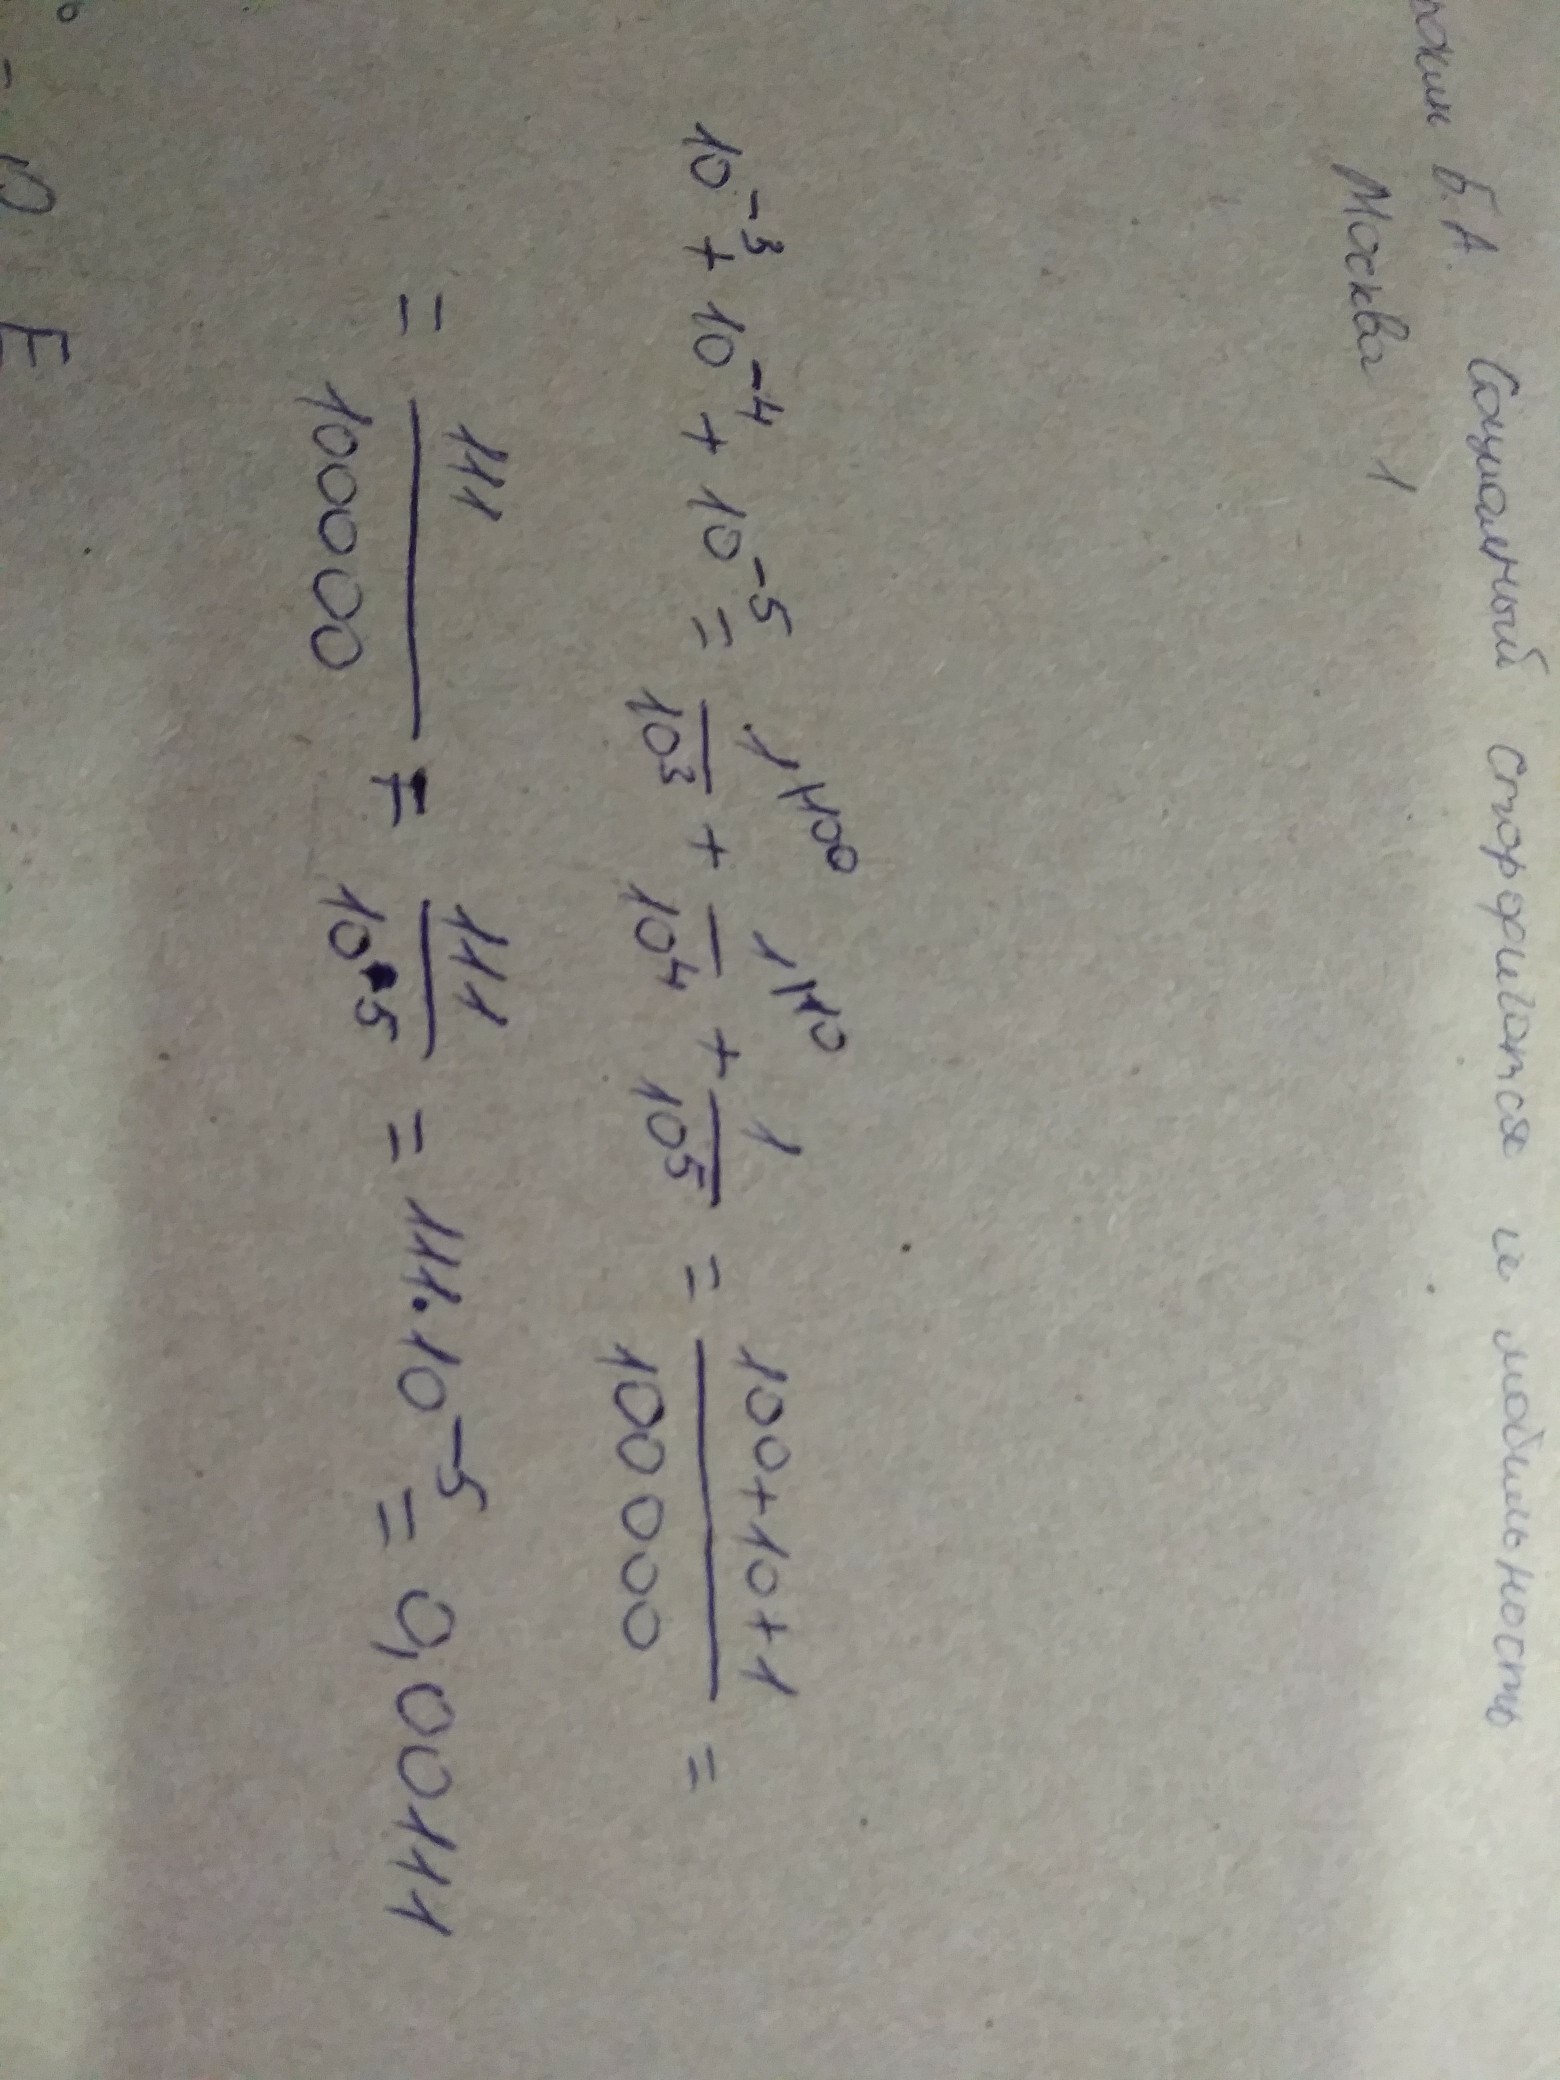 Б.А. Социальный стратификация и мобильность
Москва 1
10⁻³ + 10⁻⁴ + 10⁻⁵ = 1/10³ + 1/10⁴ + 1/10⁵ = 100+10+1/100000 =
= 111/100000 = 111/10⁵ = 111·10⁻⁵ = 0,00111